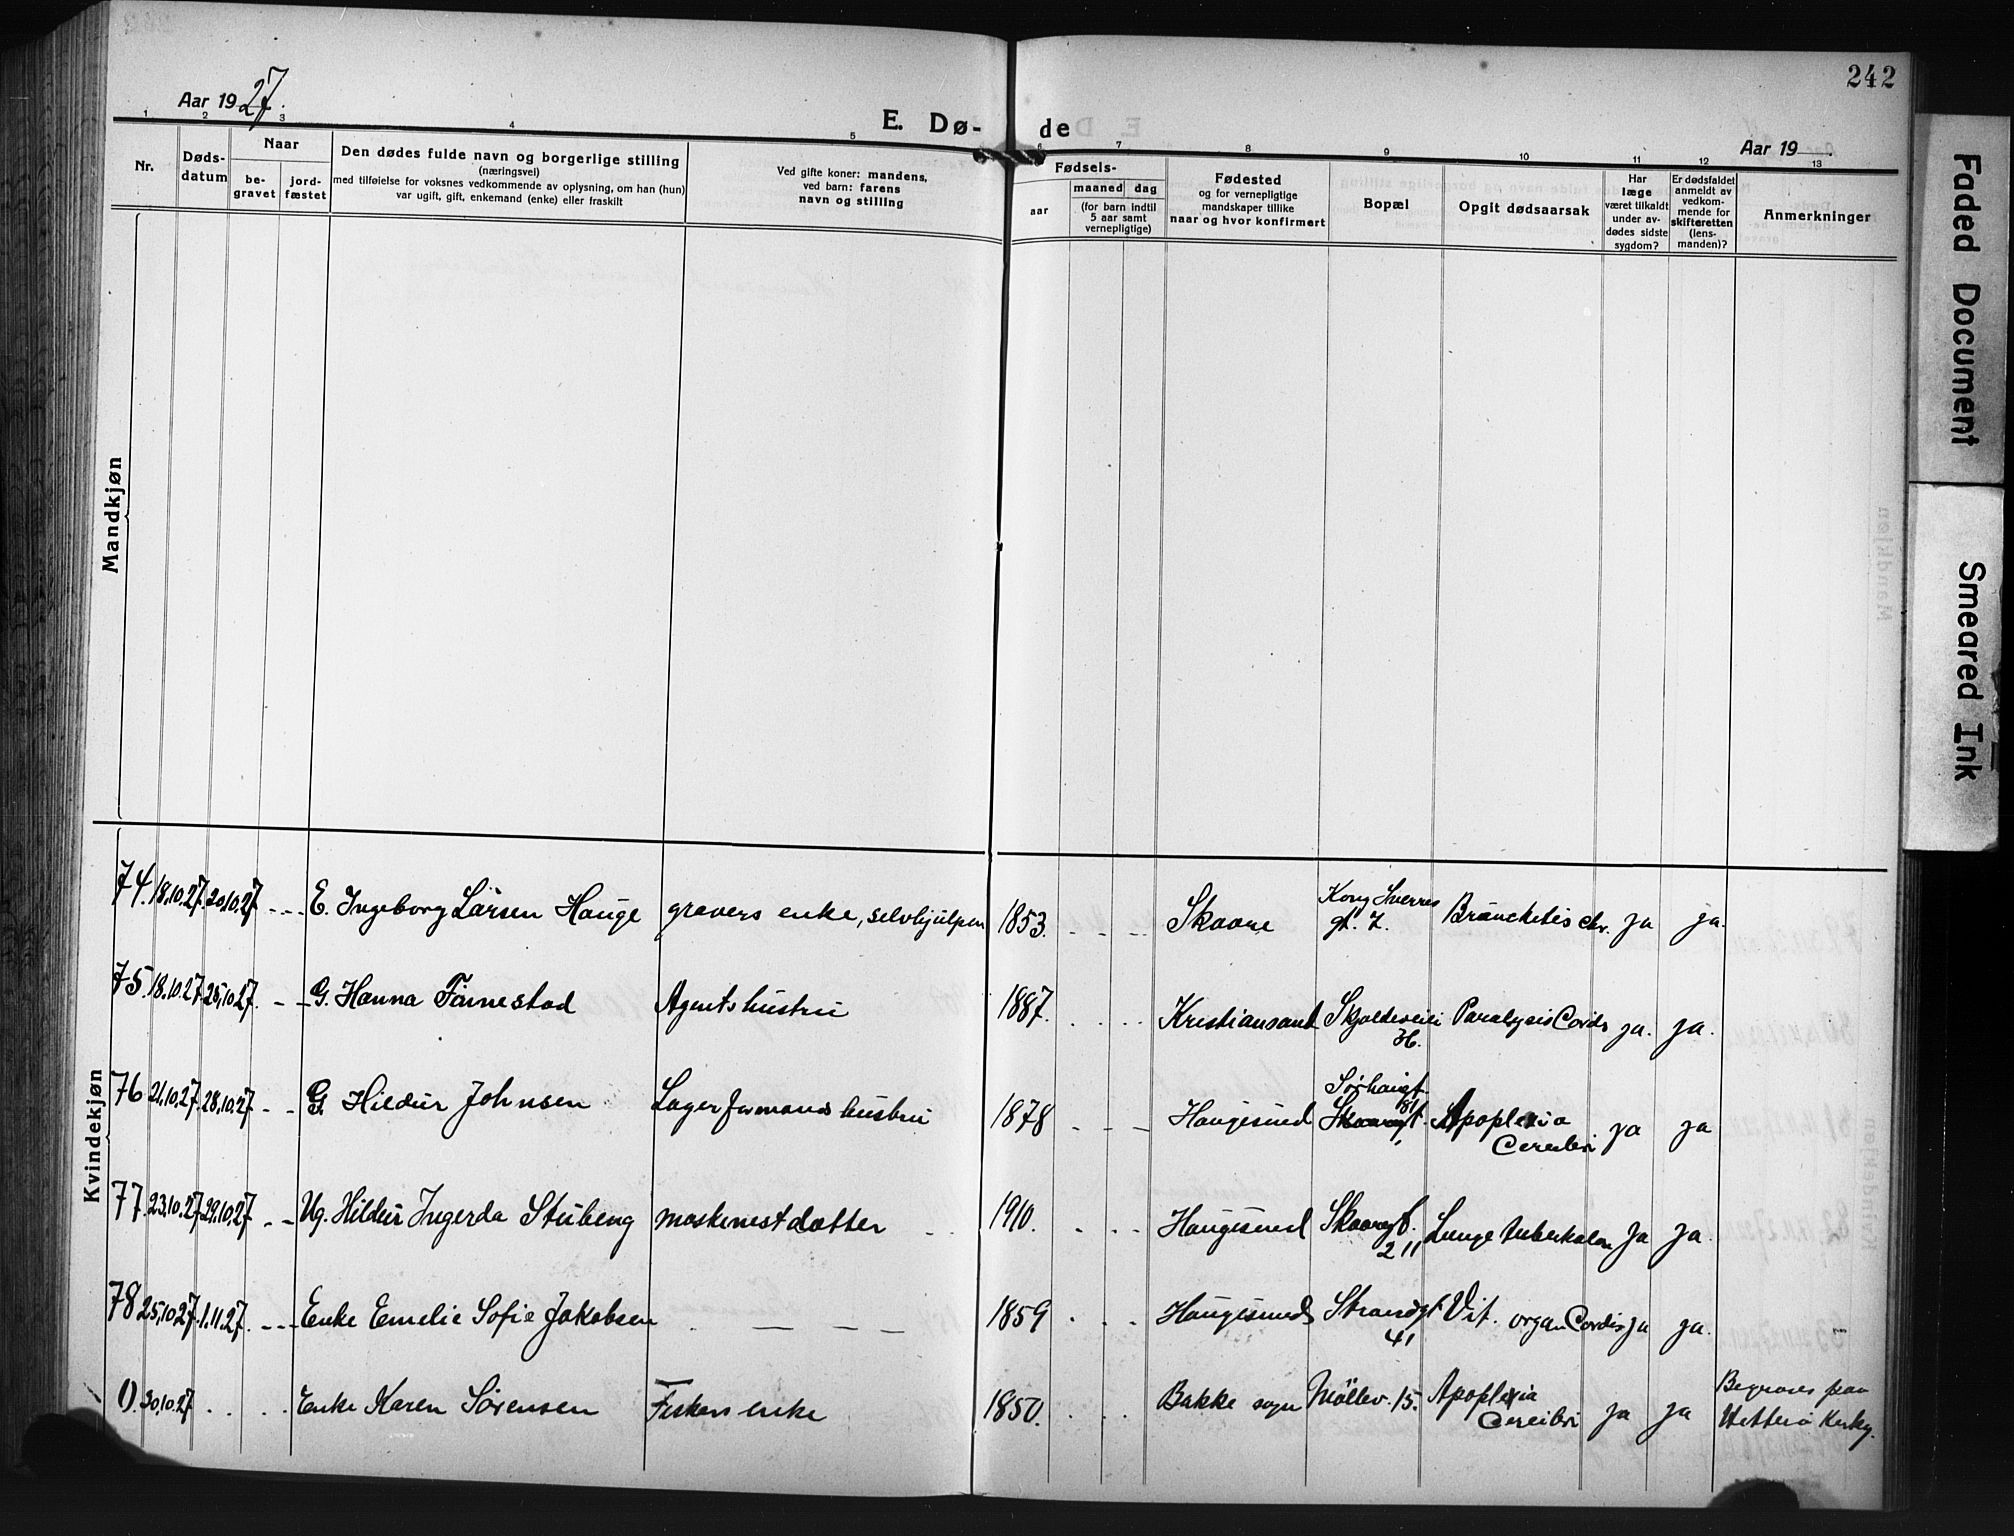 242
Aar 1927.
E. Dø- de
Aar 19
1 2 3 4 5 6 7 8 9 10 11 12 13
Nr.
Døds-
datum
Naar
be-
gravet
jord-
fæstet
Den dødes fulde navn og borgerlige stilling
(næringsvei)
med tilføielse for voksnes vedkommende av oplysning, om han (hun)
var ugift, gift, enkemand (enke) eller fraskilt
Ved gifte koner: mandens,
ved barn: farens
navn og stilling
Fødsels-
aar
maaned dag
(for barn indtil
5 aar samt
vernepligtige)
Fødested
og for vernepligtige
mandskaper tillike
naar og hvor konfirmert
Bopæl
Opgit dødsaarsak
Har
læge
været tilkaldt
under av-
dødes sidste
sygdom?
Er dødsfaldet
anmeldt av
vedkom-
mende for
skifteretten
(lens-
manden)?
Anmerkninger
Mandkjøn
Kvindekjøn
74. 18.10.27. 20.10.27 - - - E. Ingeborg Larsen Hauge gravers enke, selvhjulpen 1853. - - - Skaare Kong Sverres
gt. 7. Bronchitis chr. ja ja.
75. 18.10.27. 25.10.27. - - G. Hanna Tånnestad Agents hustru 1887. . . . Kristiansand Skjoldavei
36. Paralysis Cordis ja. ja.
76 21.10.27. 28.10.27 - - G. Hildur Johnsen Lagerformands hustru 1878 - - - Haugesund Sørhauggt.
181
Skaaregt. Apoplexia
Cerebri ja ja
77. 23.10.27 29.10.27 - - Ug. Hildur Ingerda Stuberg maskinist datter 1910. . . . Haugesund Skaaregt.
211 Lunge tuberkulose ja ja.
78 25.10.27. 1.11.27. - - - Enke Emelie Sofie Jakobsen - — — — 1859 . . . Haugesund Strandgt.
41 Vit. organ Cordis ja ja.
1) 30.10.27 . . . Enke Karen Sørensen Fiskers enke 1850. . . . Bakke sogn Møllev. 15. Apoplexia
Cerebri ja ja Begraves paa
Hitterø Kirkg.
Faded Document
Smeared Ink